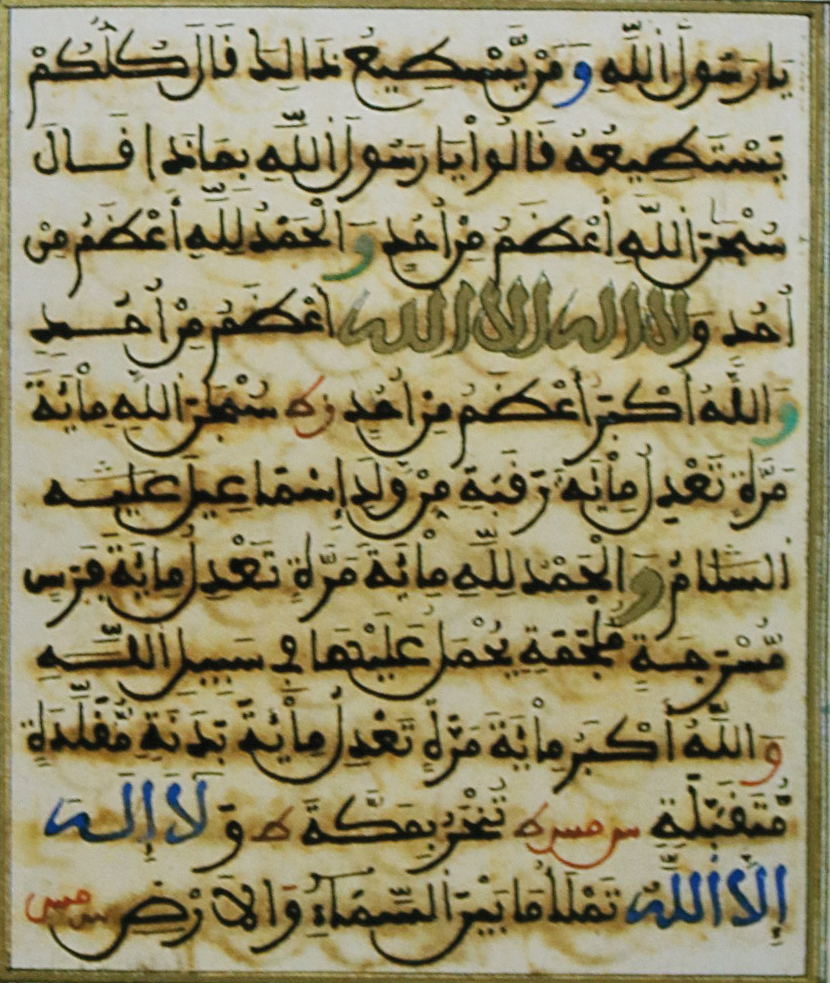 يَا رَسُولَ اللَّهِ وَمَنْ يَّسْتَطِيعُ ذَالِكَ قَالَ كُلُّكُمْ
يَسْتَطِيعُهُ قَالُواْ يَا رَسُولَ اللَّهِ بِمَاذَا قَالَ
سُبْحَنَ اللَّهِ أَعْظَمُ مِنْ أُحُدٍ وَالْحَمْدُ لِلَّهِ أَعْظَمُ مِنْ
أُحُدٍ وَلَا إِلَهَ إِلَّا اللَّهُ أَعْظَمُ مِنْ أُحُدٍ
وَاللَّهُ أَكْبَرُ أَعْظَمُ مِنْ أُحُدٍ سُبْحَنَ اللَّهِ مِائَةَ
مَرَّةٍ تَعْدِلُ مِائَةَ رَقَبَةٍ مِنْ وَلَدِ إِسْمَاعِيلَ عَلَيْهِ
السَّلَامُ وَالْحَمْدُ لِلَّهِ مِائَةَ مَرَّةٍ تَعْدِلُ مِائَةَ فَرَسٍ
مُّسْرَجَةٍ مُلْجَمَةٍ يُحْمَلُ عَلَيْهَا فِي سَبِيلِ اللَّهِ
وَاللَّهُ أَكْبَرُ مِائَةَ مَرَّةٍ تَعْدِلُ مِائَةَ بَدَنَةٍ مُّقَلَّدَةٍ
مُّتَقَبَّلَةٍ تُنْحَرُ بِمَكَّةَ وَلَا إِلَهَ
إِلَّا اللَّهُ تَمْلَأُ مَا بَيْنَ السَّمَاءِ وَالْأَرْضِ